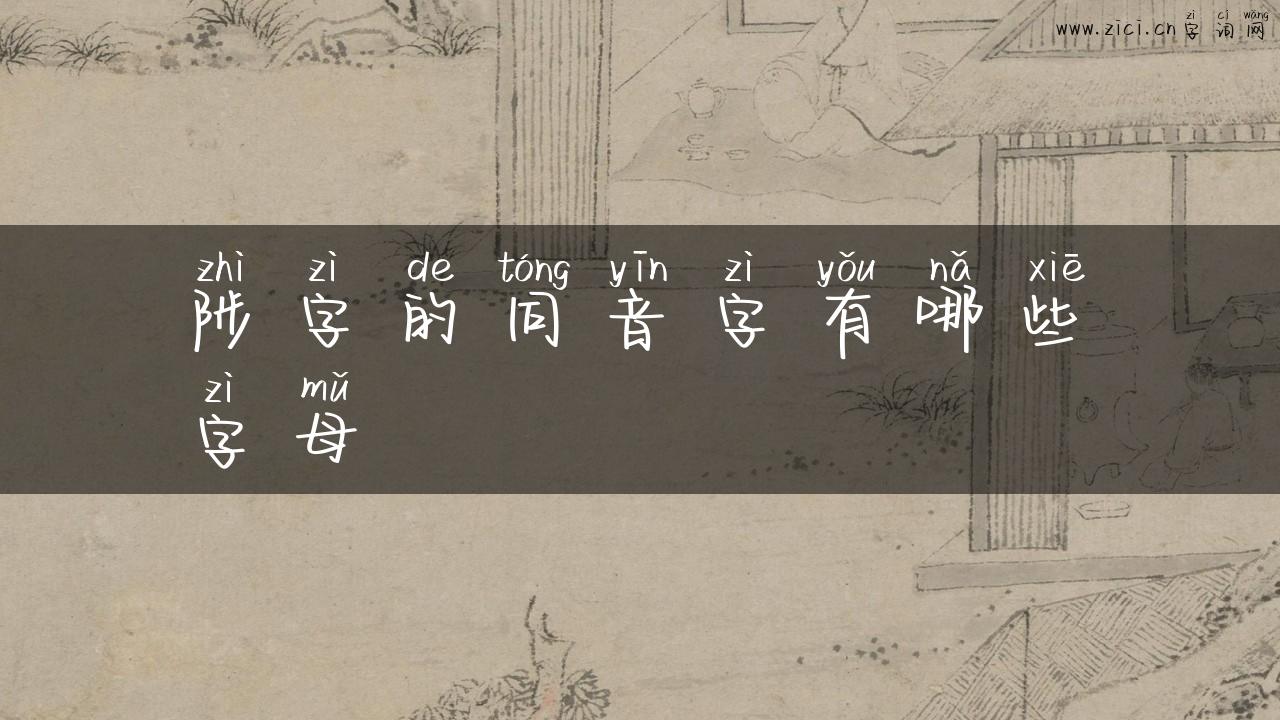 zì cí wǎng
www.zici.cn 字词网
zhì zì de tóng yīn zì yǒu nǎ xiē
陟字的同音字有哪些
zì mǔ
字母